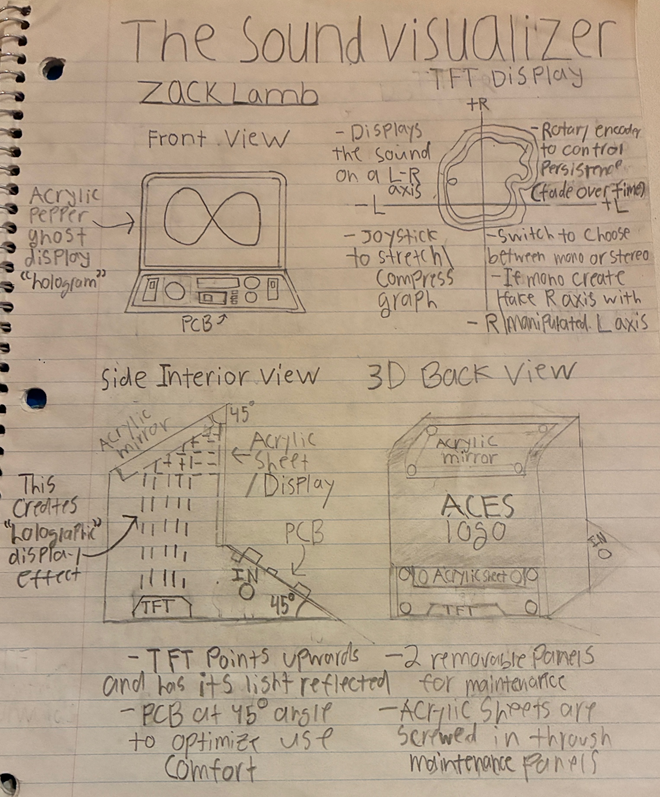 The Sound Visualizer
Zack Lamb
TFT Display
Front View
Acrylic
Pepper
ghost
display
"hologram"
PCB
+R
-L
+L
- Displays
the sound
on a L-R
axis
- Rotary encoder
to control
Persistence
(fade over time)
- Joystick
to stretch/
compress
graph
- Switch to choose
between mono or stereo
- If mono create
fake R axis with
- R/manipulated L axis
Side Interior View
Acrylic
mirror
45°
Acrylic
Sheet
/Display
PCB
This
creates
"holographic"
display
effect
IN
45°
TFT
3D Back View
Acrylic
mirror
ACES
logo
IN
Acrylic Sheet
TFT
- TFT Points upwards
and has its light reflected
- PCB at 45° angle
to optimize use
comfort
- 2 removable Panels
for maintenance
- Acrylic Sheets are
screwed in through
maintenance panels